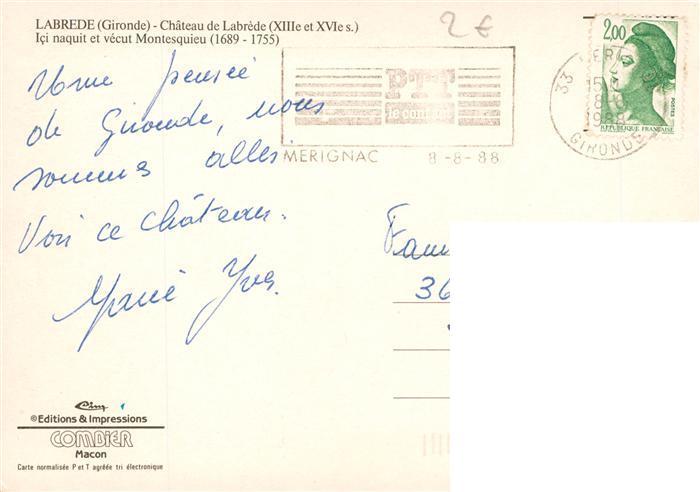 LABREDE (Gironde) - Château de Labrède (XIIIe et XVIe s.)
Içi naquit et vécut Montesquieu (1689 - 1755)
2 €
Une pensée
de Gironde, nous
sommes allés
Voir ce château.
Marie Yves
MERIGNAC 8-8-88
33
15
8
1988
GIRONDE
2,00
POSTES
REPUBLIQUE FRANÇAISE
Fam
36
Cim
©Editions & Impressions
COMBIER
Macon
Carte normalisée P et T agréée tri électronique